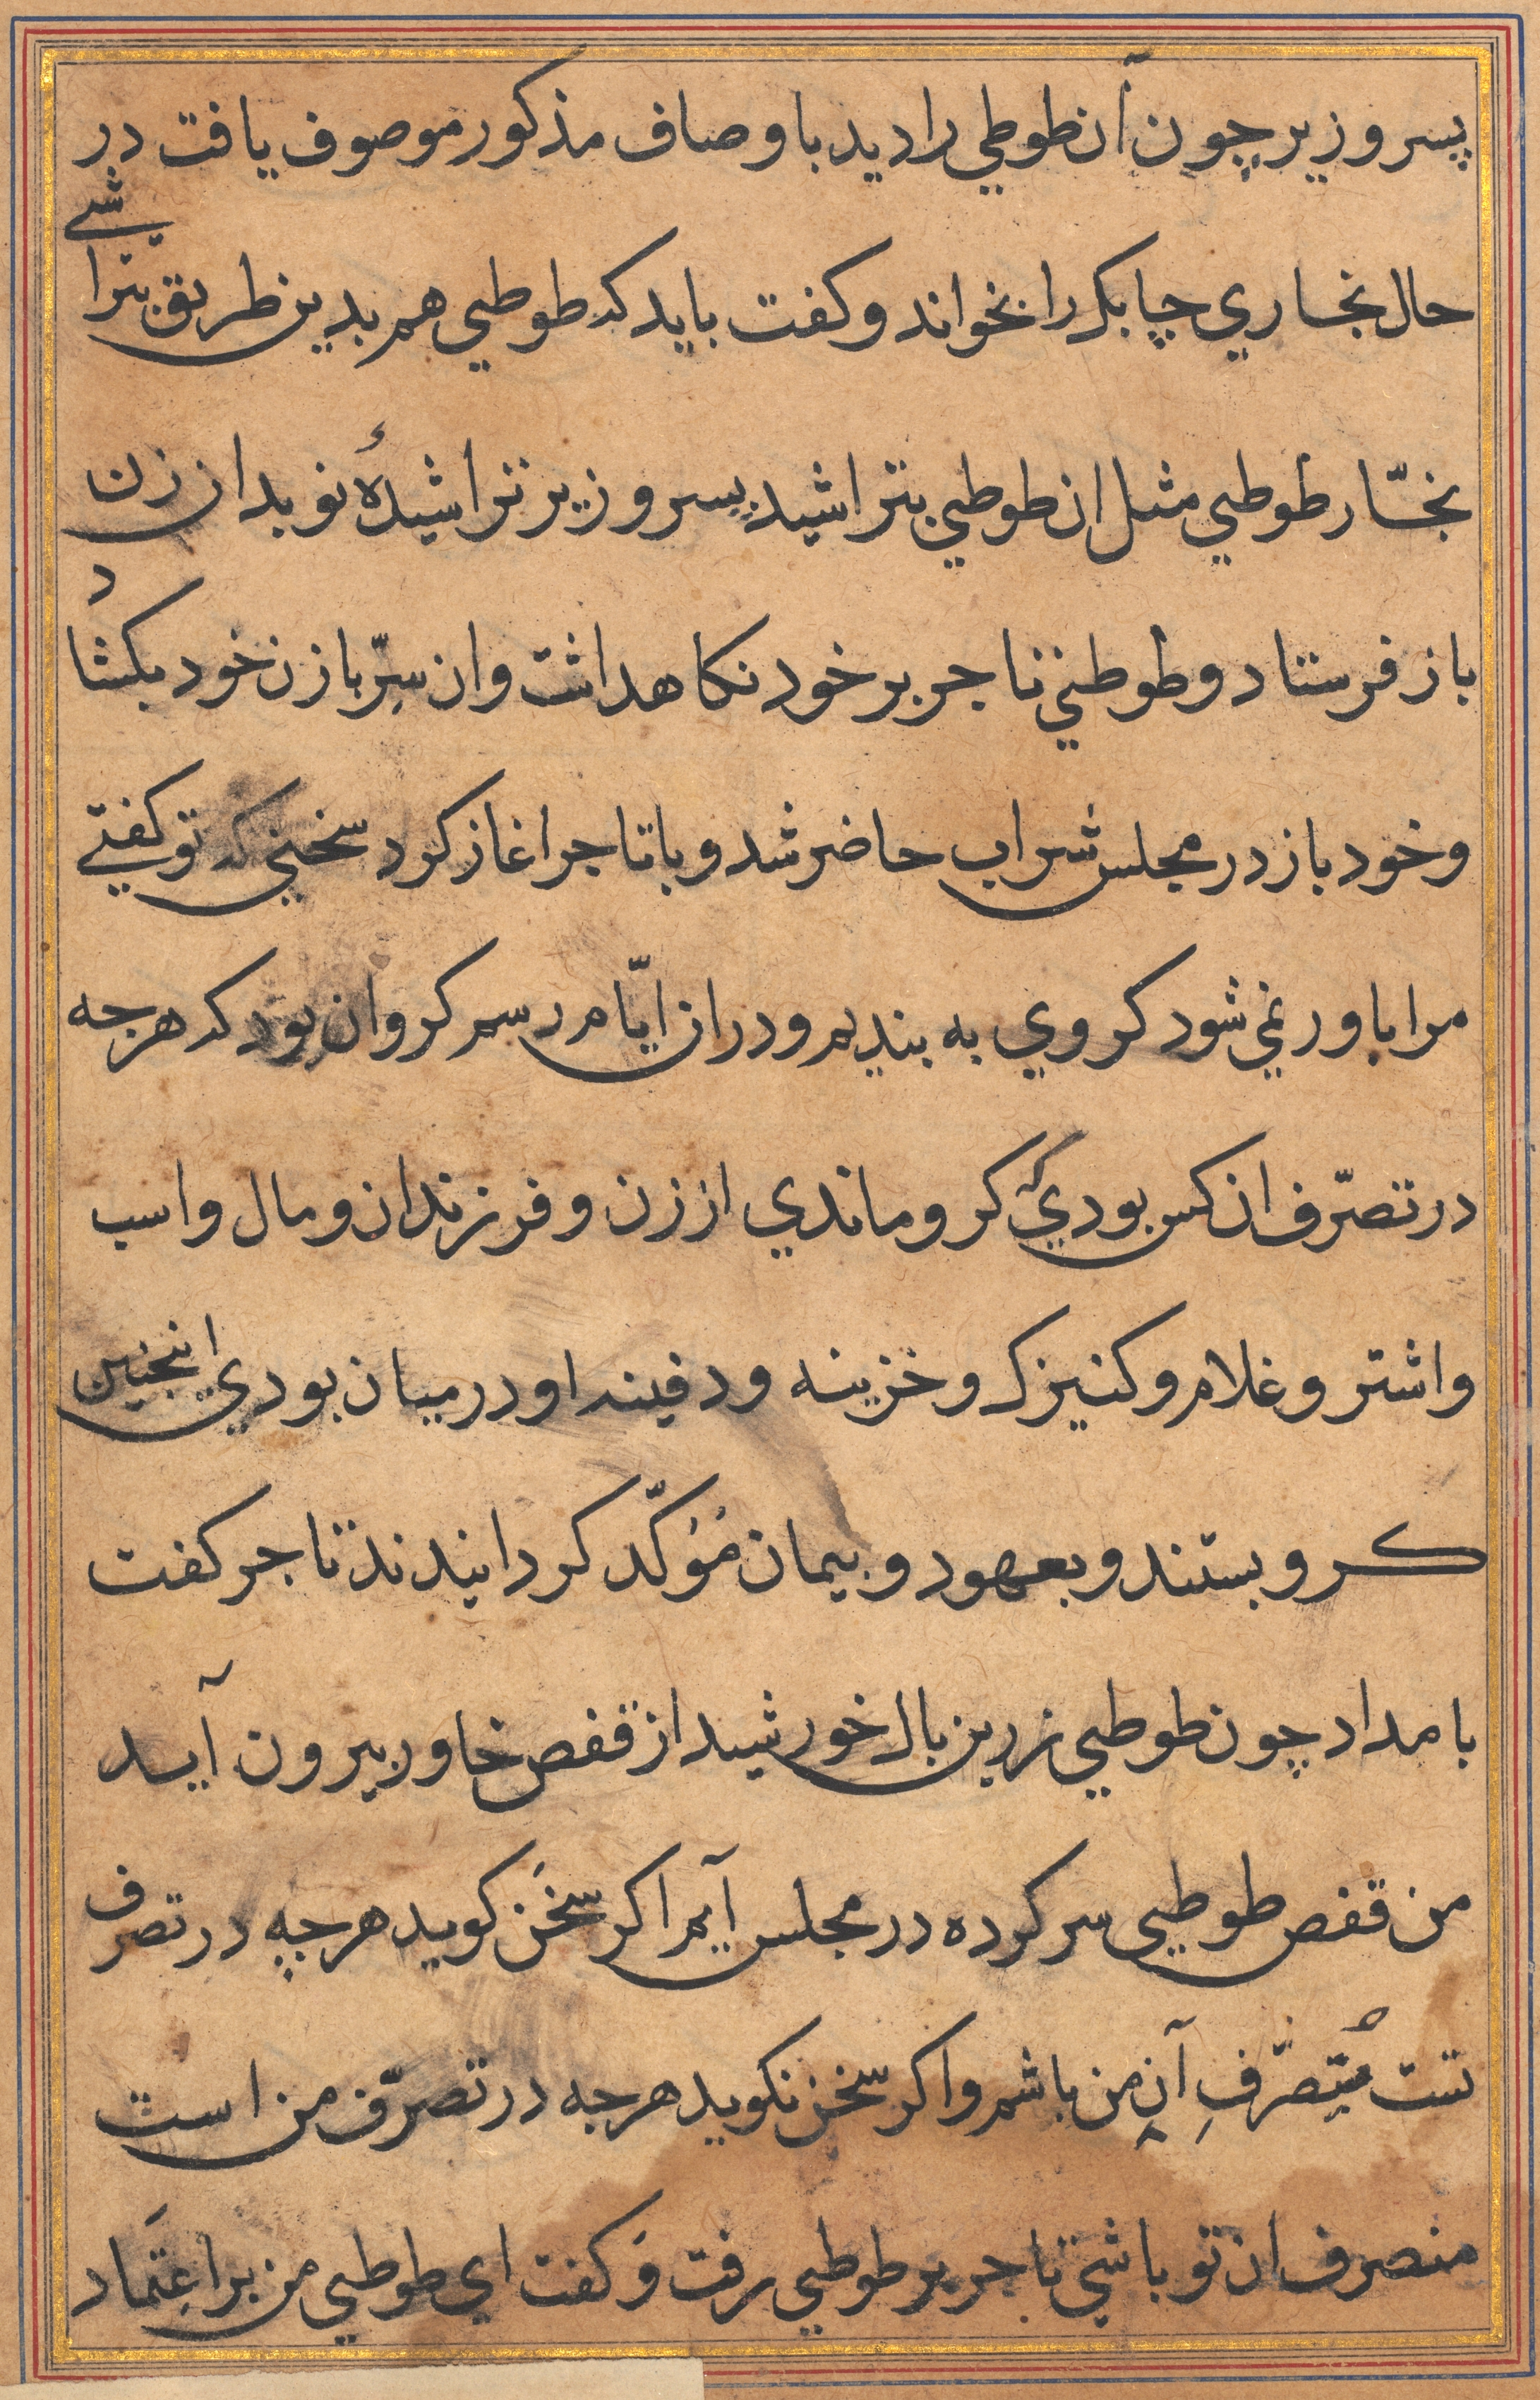 پسر وزیر چون آن طوطي را دید باوصاف مذکور موصوف یافت در
حال نجاري چابک را بخواند و کفت باید که طوطي هم بدین طریق بتراشے
نجّار طوطي مثل ان طوطي بتراشید پسر وزیر تراشیدهٔ نو بداز زن
باز فرستاد و طوطي تاجر بر خود نکاهداشت وان سِرّ با زن خود بکشاد
و خود باز در مجلس شراب حاضر شد و با تاجر اغاز کرد سخني که تو کفتے
مرا باور نمي شود کروي به بندیم و دران ایّام رسم کرو ان بود که هرجه
در تصرّف ان کس بودي که کرو ماندي از زن و فرزندان و مال واسب
واشتر و غلام و کنیزک و خزینه و دفینه او در میان بودي اینجنین
کرو بستند و بعهود و پیمان مُؤکّد کردانیدند تاجر کفت
بامداد چون طوطي زرین بال خورشید از قفص خاور بیرون آید
من قفص طوطي سر کرده در مجلس آیم اکر سخن کوید هرچه در تصرف
تست مُتصرّفِ آنِ من باشم واکر سخن نکوید هرجه در تصرّف من است
متصرف ان تو باشي تاجر بر طوطي رفت و کفت اي طوطي من بر اعتماد